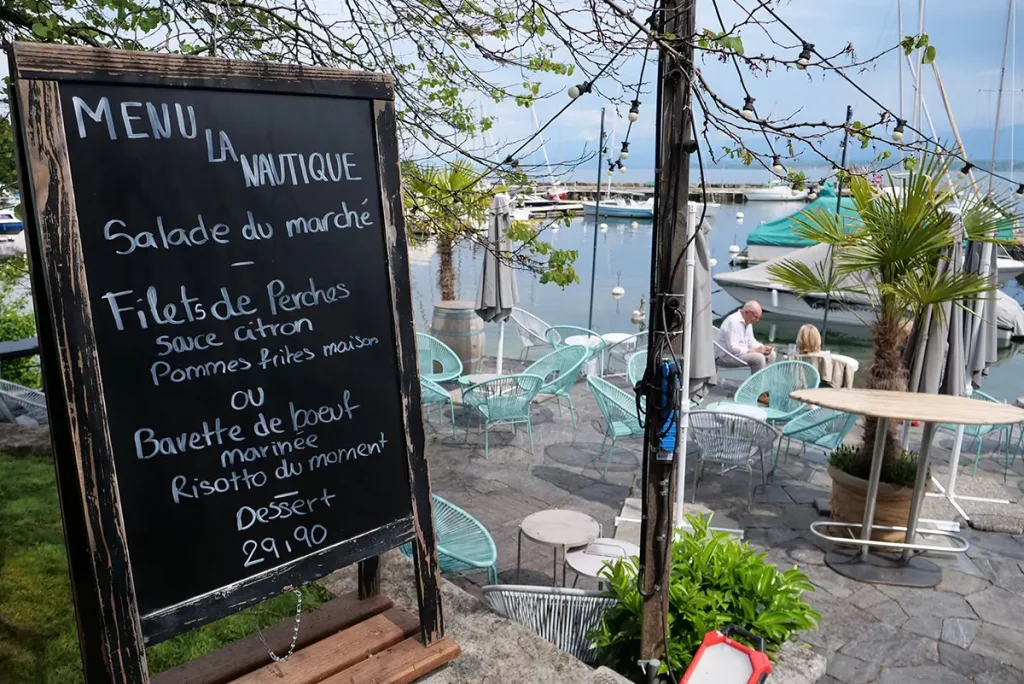 MENU
LA
NAUTIQUE
Salade du marché
-
Filets de Perches
sauce citron
Pommes frites maison
OU
Bavette de boeuf
marinée
Risotto du moment
-
Dessert
29,90